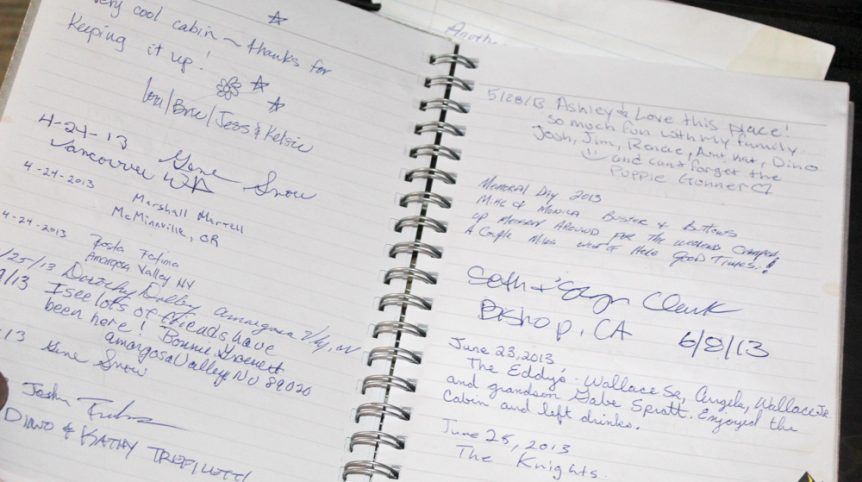 very cool cabin ~ thanks for
Keeping it up!
Lori/Brie/Jess & Kelsie
4-24-13 Gene Snow
Vancouver WA
4-24-2013 Marshall Martell
McMinnville, OR
4-24-2013
Amargosa Valley NV
/25/13 Dorothy Amargosa Vly, NV
/13 I see lots of friends have
been here! Bonnie
Amargosa Valley NV 89020
13 Gene Snow
Josh
Dino & KATHY TREFILETTI
Anothe
5/28/13 Ashley & Love this place!
so much fun with my family...
Josh, Jim, Renae, Aunt nat, Dino
and can't forget the
Puppie Gonner
Memorial Day 2013
Mike & Monica Buster & Buttons
up Messin Around for the weekend camping
A Couple Miles west of Here Good Times!!
Seth & Clark
Bishop, CA 6/8/13
June 23, 2013
The Eddy's - Wallace Sr, Angela, Wallace Jr
and grandson Gabe Spratt. Enjoyed the
cabin and left drinks.
June 25, 2013
The Knights.